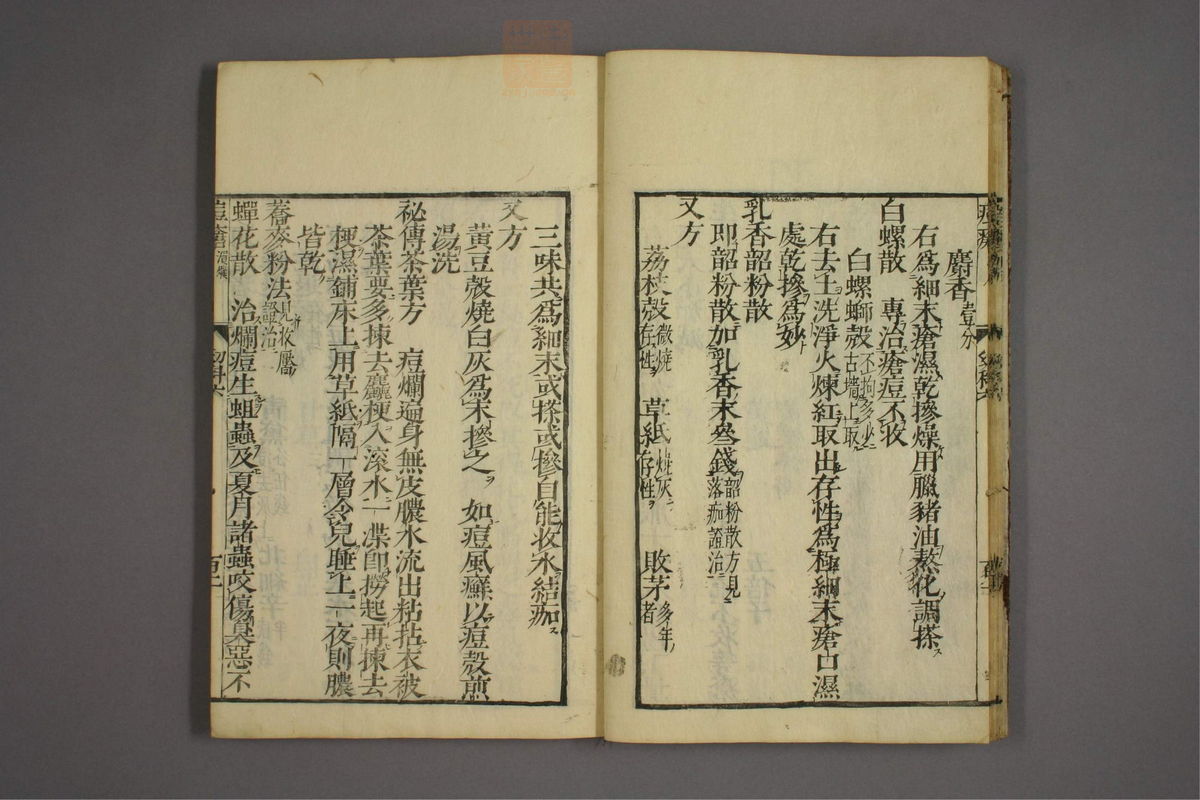 麝香壹分
右爲細末瘡濕乾摻燥用臘豬油熬化調搽
白螺散 專治瘡痘不收
白螺螄殼不拘多少古墻上取
右去土洗淨火煉紅取出存性爲極細末瘡口濕
處乾摻爲妙
乳香韶粉散
即韶粉散加乳香末叄錢韶粉散方見落痂證治
又方
荔枝殼微燒存性 草紙燒灰存性 敗茅多年者
三味共爲細末或搽或摻自能收水結痂
又方
黃豆殼燒白灰爲末摻之 如痘風癬以痘殼煎
湯洗
祕傳茶葉方 痘爛遍身無皮膿水流出粘拈衣被
茶葉要多揀去麤梗入滚水一渫即撈起再揀去
梗濕鋪床上用草紙隔一層令兒睡上一夜則膿
皆乾
蕎麥粉法見收靨證治
蟬花散 治爛痘生蛆蟲及夏月諸蟲咬傷臭惡不